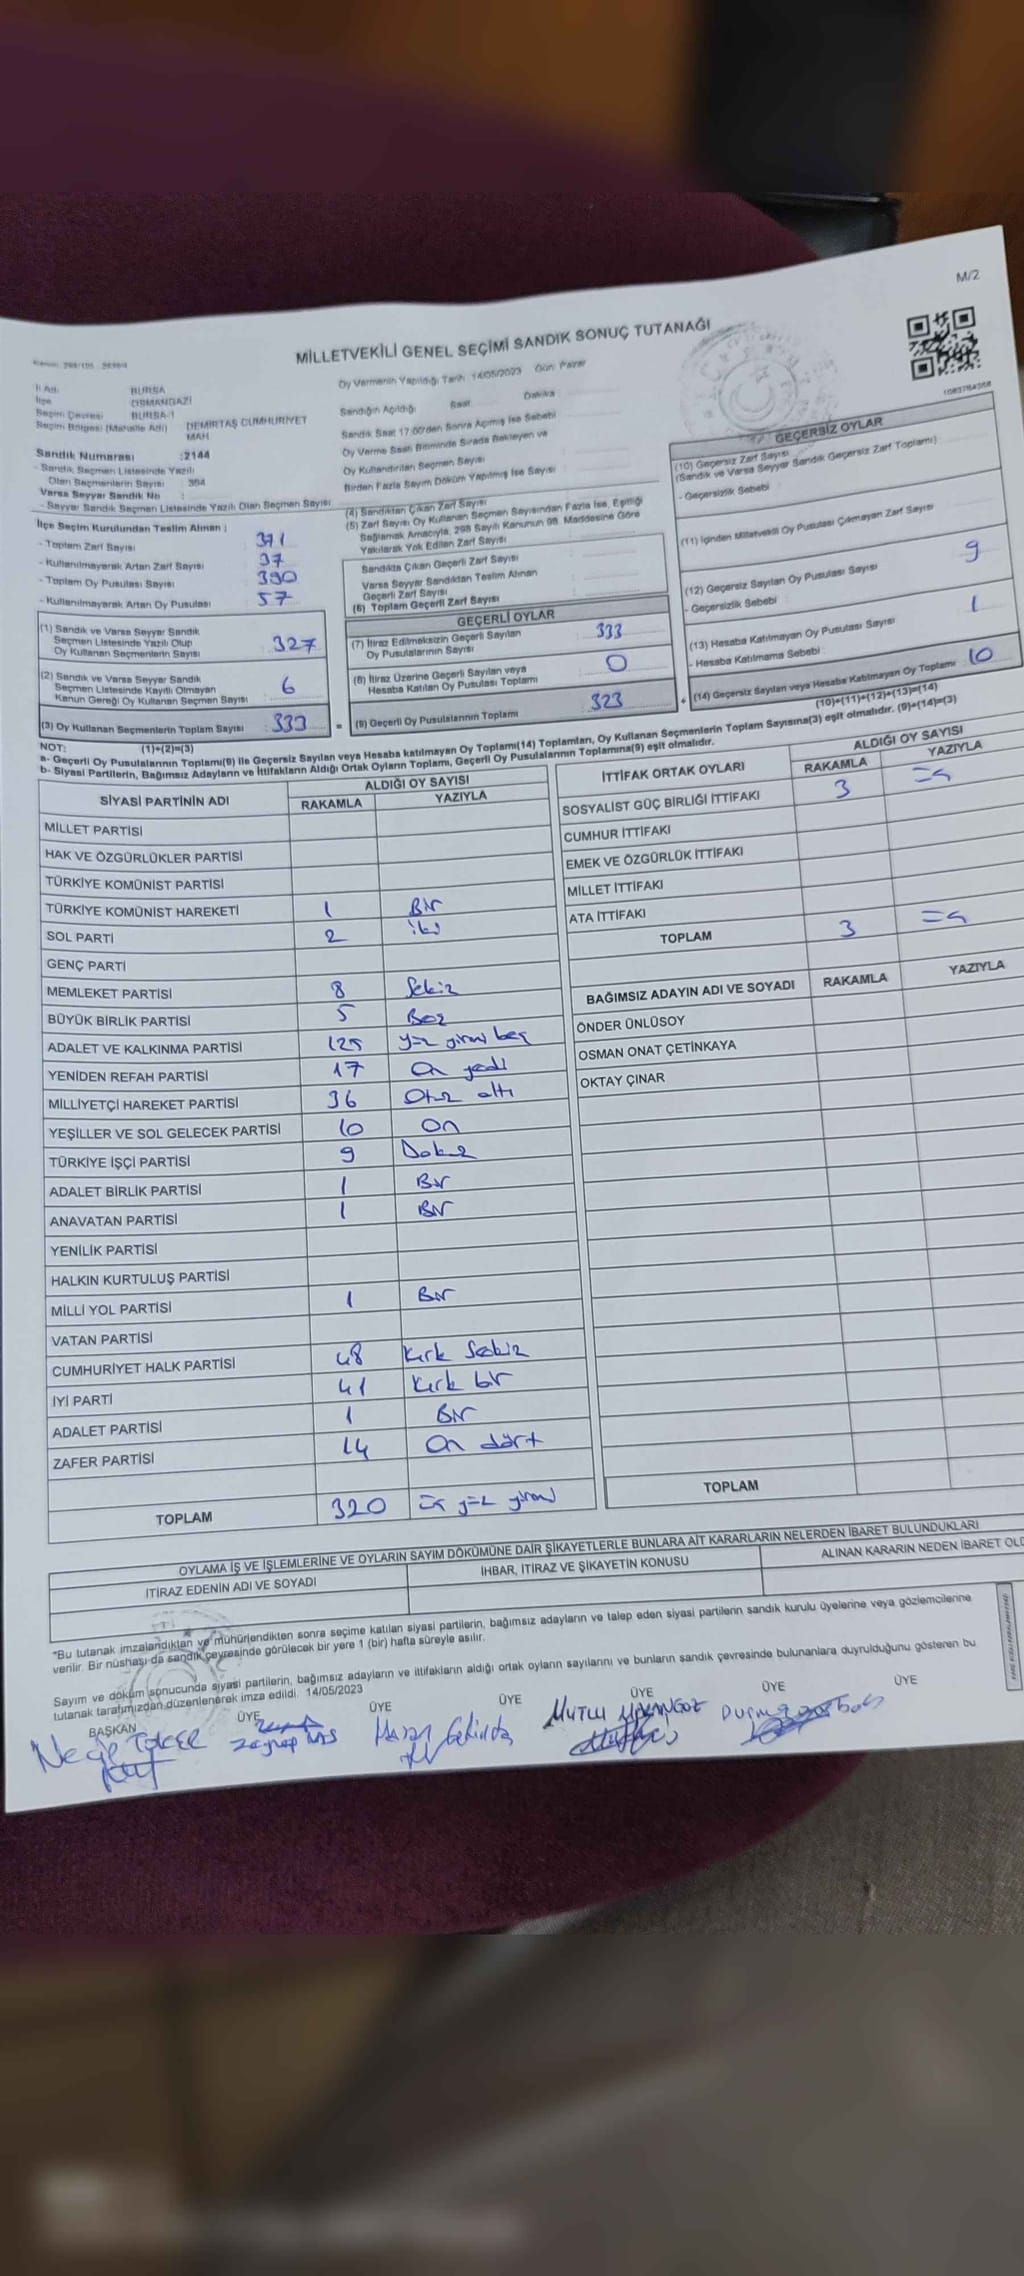 M/2
MİLLETVEKİLİ GENEL SEÇİMİ SANDIK SONUÇ TUTANAĞI
Oy Vermenin Yapıldığı Tarih: 14/05/2023 Gün: Pazar
İl Adı: BURSA
İlçe OSMANGAZİ
Seçim Çevresi BURSA-1
Seçim Bölgesi (Mahalle Adı) DEMİRTAŞ CUMHURİYET
MAH.
Sandık Numarası :2144
- Sandık Seçmen Listesinde Yazılı
Olan Seçmenlerin Sayısı : 364
Varsa Seyyar Sandık No
- Seyyar Sandık Seçmen Listesinde Yazılı Olan Seçmen Sayısı
İlçe Seçim Kurulundan Teslim Alınan :
- Toplam Zarf Sayısı 371
- Kullanılmayarak Artan Zarf Sayısı 37
- Toplam Oy Pusulası Sayısı 390
- Kullanılmayarak Artan Oy Pusulası 57
(1) Sandık ve Varsa Seyyar Sandık
Seçmen Listesinde Yazılı Olup
Oy Kullanan Seçmenlerin Sayısı 327
(2) Sandık ve Varsa Seyyar Sandık
Seçmen Listesinde Kayıtlı Olmayan
Kanun Gereği Oy Kullanan Seçmen Sayısı 6
(3) Oy Kullanan Seçmenlerin Toplam Sayısı 333
Sandığın Açıldığı Saat Dakika
Sandık Saat 17:00'den Sonra Açılmış İse Sebebi
Oy Verme Saati Bitiminde Sırada Bekleyen ve
Oy Kullandırılan Seçmen Sayısı
Birden Fazla Sayım Döküm Yapılmış İse Sayısı
(4) Sandıktan Çıkan Zarf Sayısı
(5) Zarf Sayısı Oy Kullanan Seçmen Sayısından Fazla İse, Eşitliği
Sağlamak Amacıyla, 298 Sayılı Kanunun 98. Maddesine Göre
Yakılarak Yok Edilen Zarf Sayısı
Sandıkta Çıkan Geçerli Zarf Sayısı
Varsa Seyyar Sandıktan Teslim Alınan
Geçerli Zarf Sayısı
(6) Toplam Geçerli Zarf Sayısı
GEÇERLİ OYLAR
(7) İtiraz Edilmeksizin Geçerli Sayılan
Oy Pusulalarının Sayısı 333
(8) İtiraz Üzerine Geçerli Sayılan veya
Hesaba Katılan Oy Pusulası Toplamı 0
= (9) Geçerli Oy Pusulalarının Toplamı 323 +
GEÇERSİZ OYLAR
(10) Geçersiz Zarf Sayısı
(Sandık ve Varsa Seyyar Sandık Geçersiz Zarf Toplamı)
- Geçersizlik Sebebi
(11) İçinden Milletvekili Oy Pusulası Çıkmayan Zarf Sayısı
(12) Geçersiz Sayılan Oy Pusulası Sayısı 9
- Geçersizlik Sebebi
(13) Hesaba Katılmayan Oy Pusulası Sayısı 1
- Hesaba Katılmama Sebebi
(14) Geçersiz Sayılan veya Hesaba Katılmayan Oy Toplamı 10
(10)+(11)+(12)+(13)=(14)
NOT: (1)+(2)=(3)
a- Geçerli Oy Pusulalarının Toplamı(9) ile Geçersiz Sayılan veya Hesaba katılmayan Oy Toplamı(14) Toplamları, Oy Kullanan Seçmenlerin Toplam Sayısına(3) eşit olmalıdır. (9)+(14)=(3)
b- Siyasi Partilerin, Bağımsız Adayların ve İttifakların Aldığı Ortak Oyların Toplamı, Geçerli Oy Pusulalarının Toplamına(9) eşit olmalıdır.
SİYASİ PARTİNİN ADI ALDIĞI OY SAYISI
RAKAMLA YAZIYLA
MİLLET PARTİSİ
HAK VE ÖZGÜRLÜKLER PARTİSİ
TÜRKİYE KOMÜNİST PARTİSİ
TÜRKİYE KOMÜNİST HAREKETİ 1 Bir
SOL PARTİ 2 iki
GENÇ PARTİ
MEMLEKET PARTİSİ 8 Sekiz
BÜYÜK BİRLİK PARTİSİ 5 Beş
ADALET VE KALKINMA PARTİSİ 125 yüz yirmi beş
YENİDEN REFAH PARTİSİ 17 On yedi
MİLLİYETÇİ HAREKET PARTİSİ 36 Otuz altı
YEŞİLLER VE SOL GELECEK PARTİSİ 10 On
TÜRKİYE İŞÇİ PARTİSİ 9 Dokuz
ADALET BİRLİK PARTİSİ 1 Bir
ANAVATAN PARTİSİ 1 Bir
YENİLİK PARTİSİ
HALKIN KURTULUŞ PARTİSİ
MİLLİ YOL PARTİSİ 1 Bir
VATAN PARTİSİ
CUMHURİYET HALK PARTİSİ 48 Kırk Sekiz
İYİ PARTİ 41 Kırk bir
ADALET PARTİSİ 1 Bir
ZAFER PARTİSİ 14 On dört
TOPLAM 320 üç yüz yirmi
İTTİFAK ORTAK OYLARI ALDIĞI OY SAYISI
RAKAMLA YAZIYLA
SOSYALİST GÜÇ BİRLİĞİ İTTİFAKI 3 üç
CUMHUR İTTİFAKI
EMEK VE ÖZGÜRLÜK İTTİFAKI
MİLLET İTTİFAKI
ATA İTTİFAKI
TOPLAM 3 üç
BAĞIMSIZ ADAYIN ADI VE SOYADI RAKAMLA YAZIYLA
ÖNDER ÜNLÜSOY
OSMAN ONAT ÇETİNKAYA
OKTAY ÇINAR
TOPLAM
OYLAMA İŞ VE İŞLEMLERİNE VE OYLARIN SAYIM DÖKÜMÜNE DAİR ŞİKAYETLERLE BUNLARA AİT KARARLARIN NELERDEN İBARET BULUNDUKLARI
İTİRAZ EDENİN ADI VE SOYADI İHBAR, İTİRAZ VE ŞİKAYETİN KONUSU ALINAN KARARIN NEDEN İBARET OLD
"Bu tutanak imzalandıktan ve mühürlendikten sonra seçime katılan siyasi partilerin, bağımsız adayların ve talep eden siyasi partilerin sandık kurulu üyelerine veya gözlemcilerine
verilir. Bir nüshası da sandık çevresinde görülecek bir yere 1 (bir) hafta süreyle asılır.
Sayım ve döküm sonucunda siyasi partilerin, bağımsız adayların ve ittifakların aldığı ortak oyların sayılarını ve bunların sandık çevresinde bulunanlara duyrulduğunu gösteren bu
tutanak tarafımızdan düzenlenerek imza edildi. 14/05/2023
BAŞKAN ÜYE ÜYE ÜYE ÜYE ÜYE ÜYE
Zeynep MUTLU